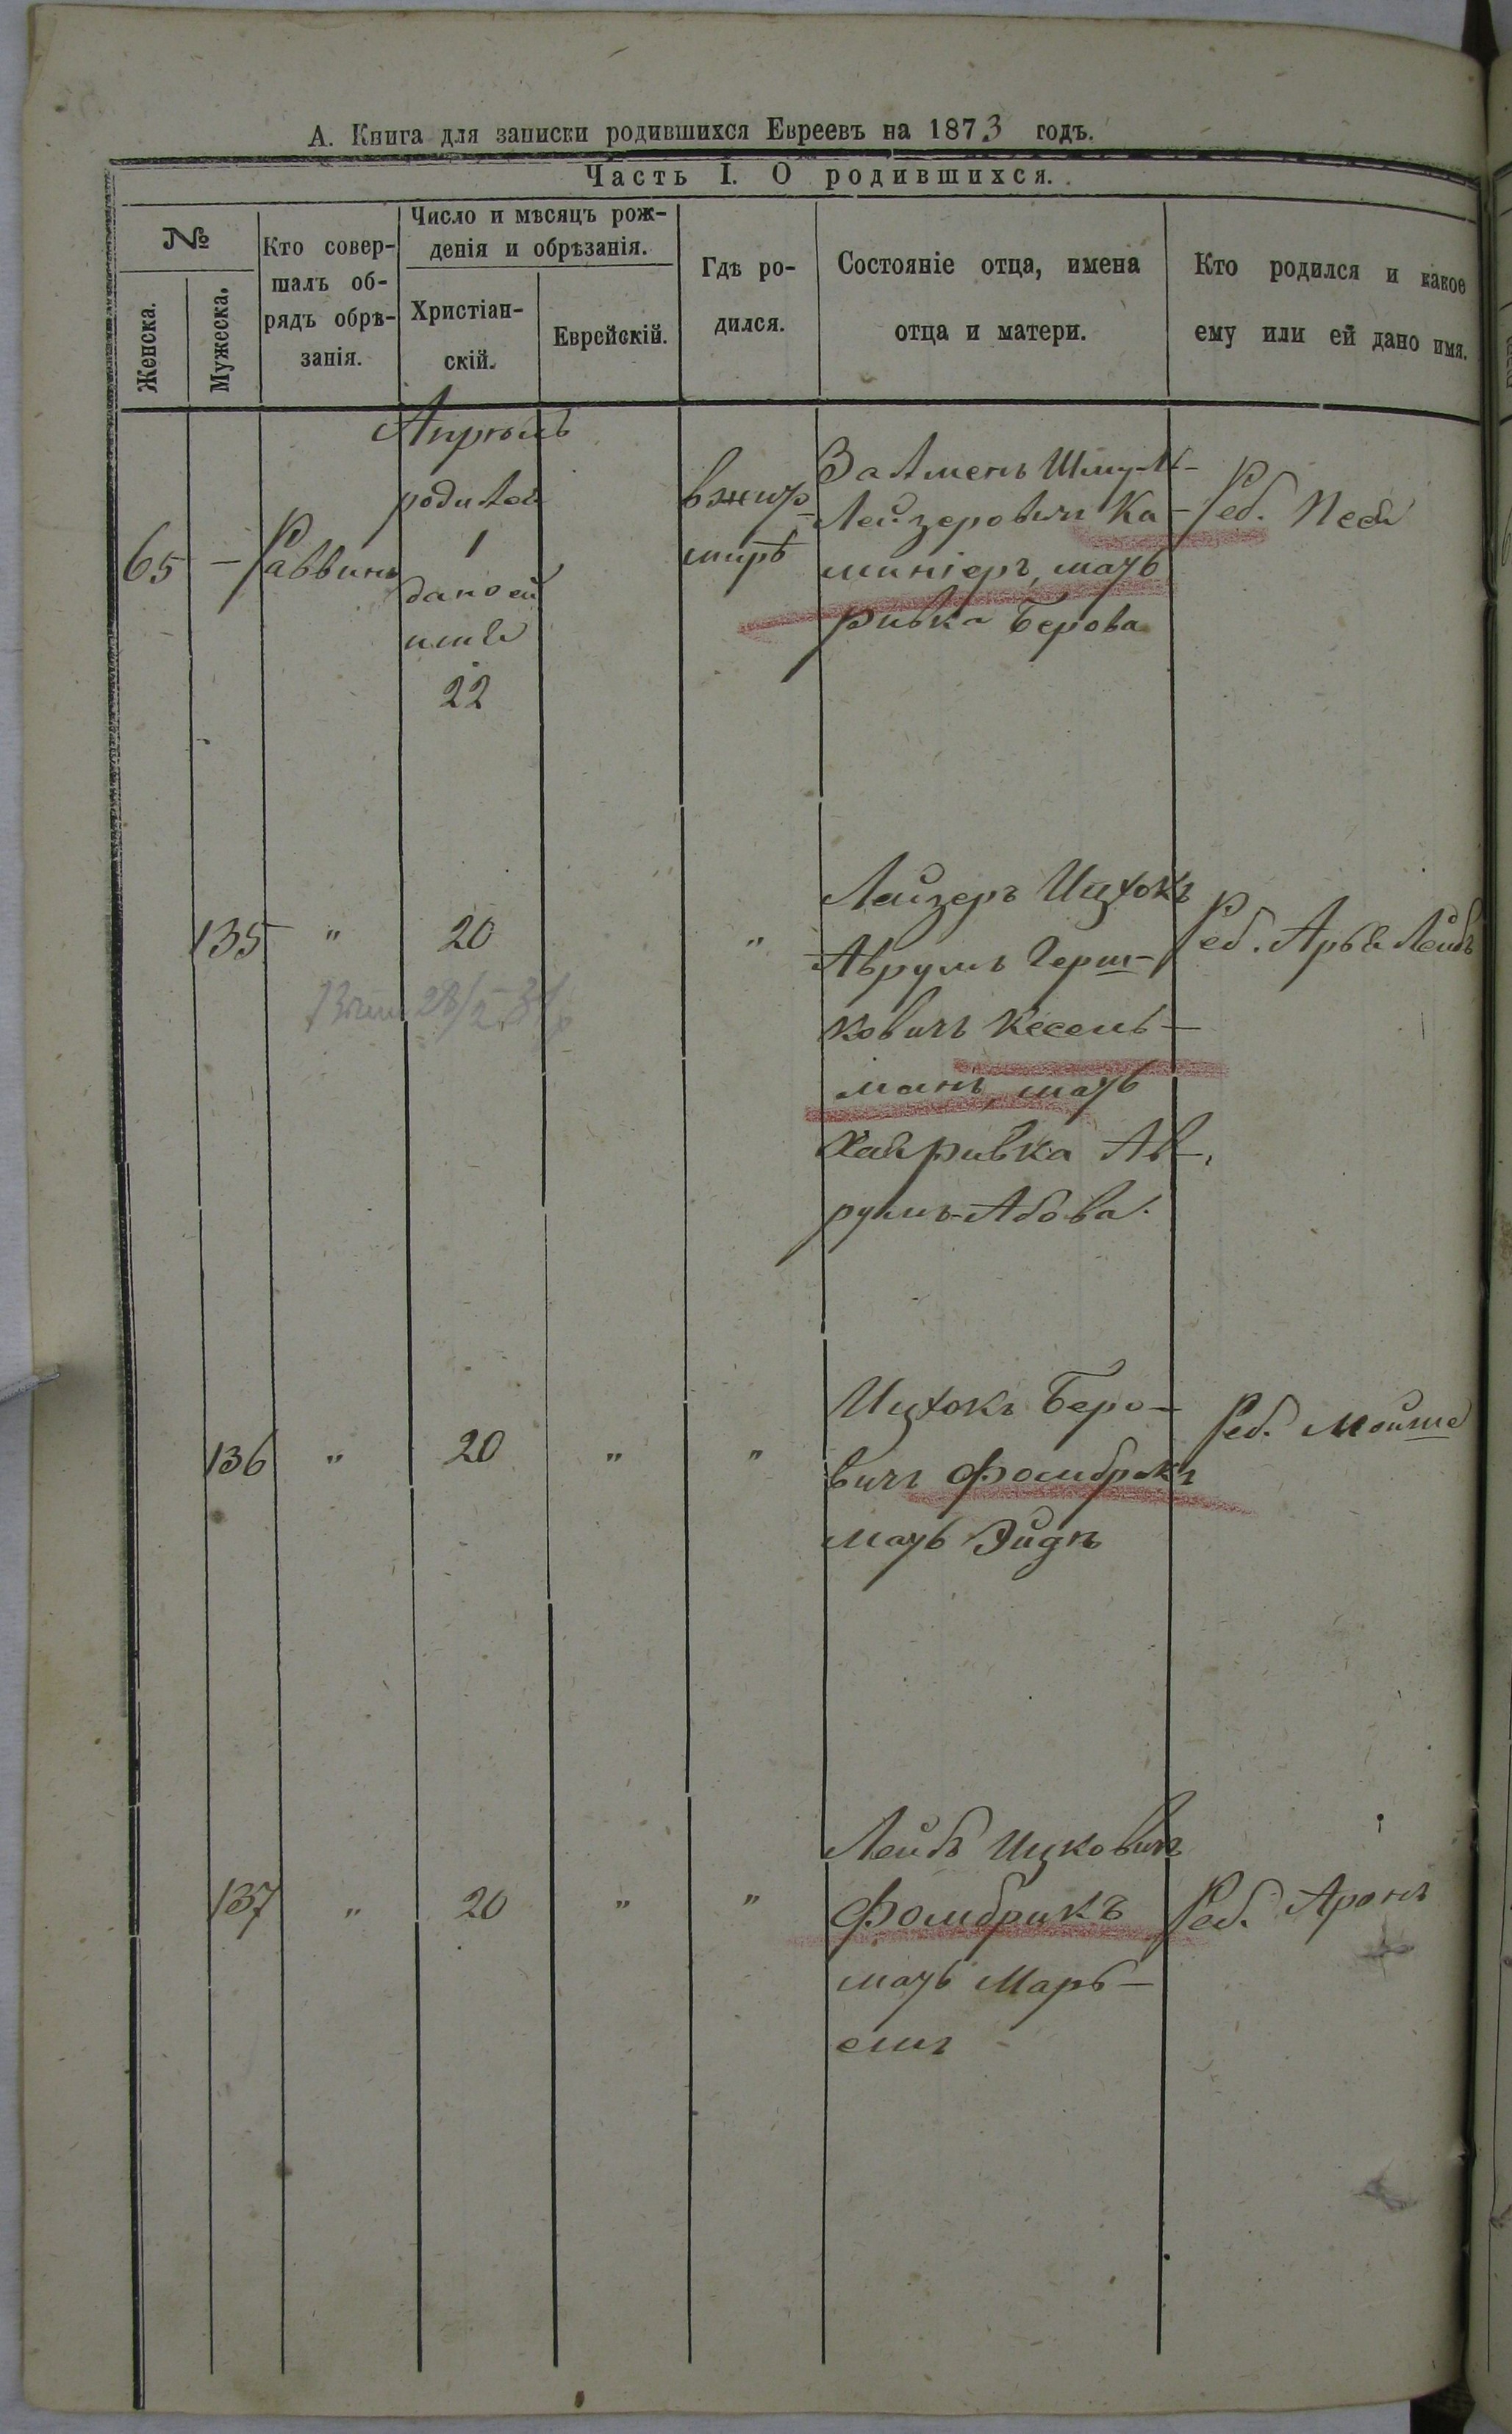 А. Книга для записки родившихся Евреевъ на 1873 годъ.
Часть I. О родившихся.
№
Женска.
Мужеска.
Кто совер-
шалъ об-
рядъ обрѣ-
занія.
Число и мѣсяцъ рож-
денія и обрѣзанія.
Христіан-
скій.
Еврейскій.
Гдѣ ро-
дился.
Состояніе отца, имена
отца и матери.
Кто родился и какое
ему или ей дано имя.
Апрѣль
65 – Раввинъ
родилась
1
дано ей
имя
22
в жито
мирѣ
Залменъ Шмуль
Лейзеровичъ Ка-
миніеръ, мать
Ривка Берова
Реб. Песя
135 " 20 "
Лейзеръ Ицхокъ
Аврумъ Герш-
ковичъ Кесель-
манъ, мать
Хая Ривка Ав-
румъ-Абова.
Реб. Арья Лейбъ
136 " 20 " "
Ицхокъ Беро-
вичъ Фомбрикъ
мать Эйдя
Реб. Мойше
137 " 20 " "
Лейбъ Ицковичъ
Фомбрикъ
мать Марь-
емъ
Реб. Аронъ